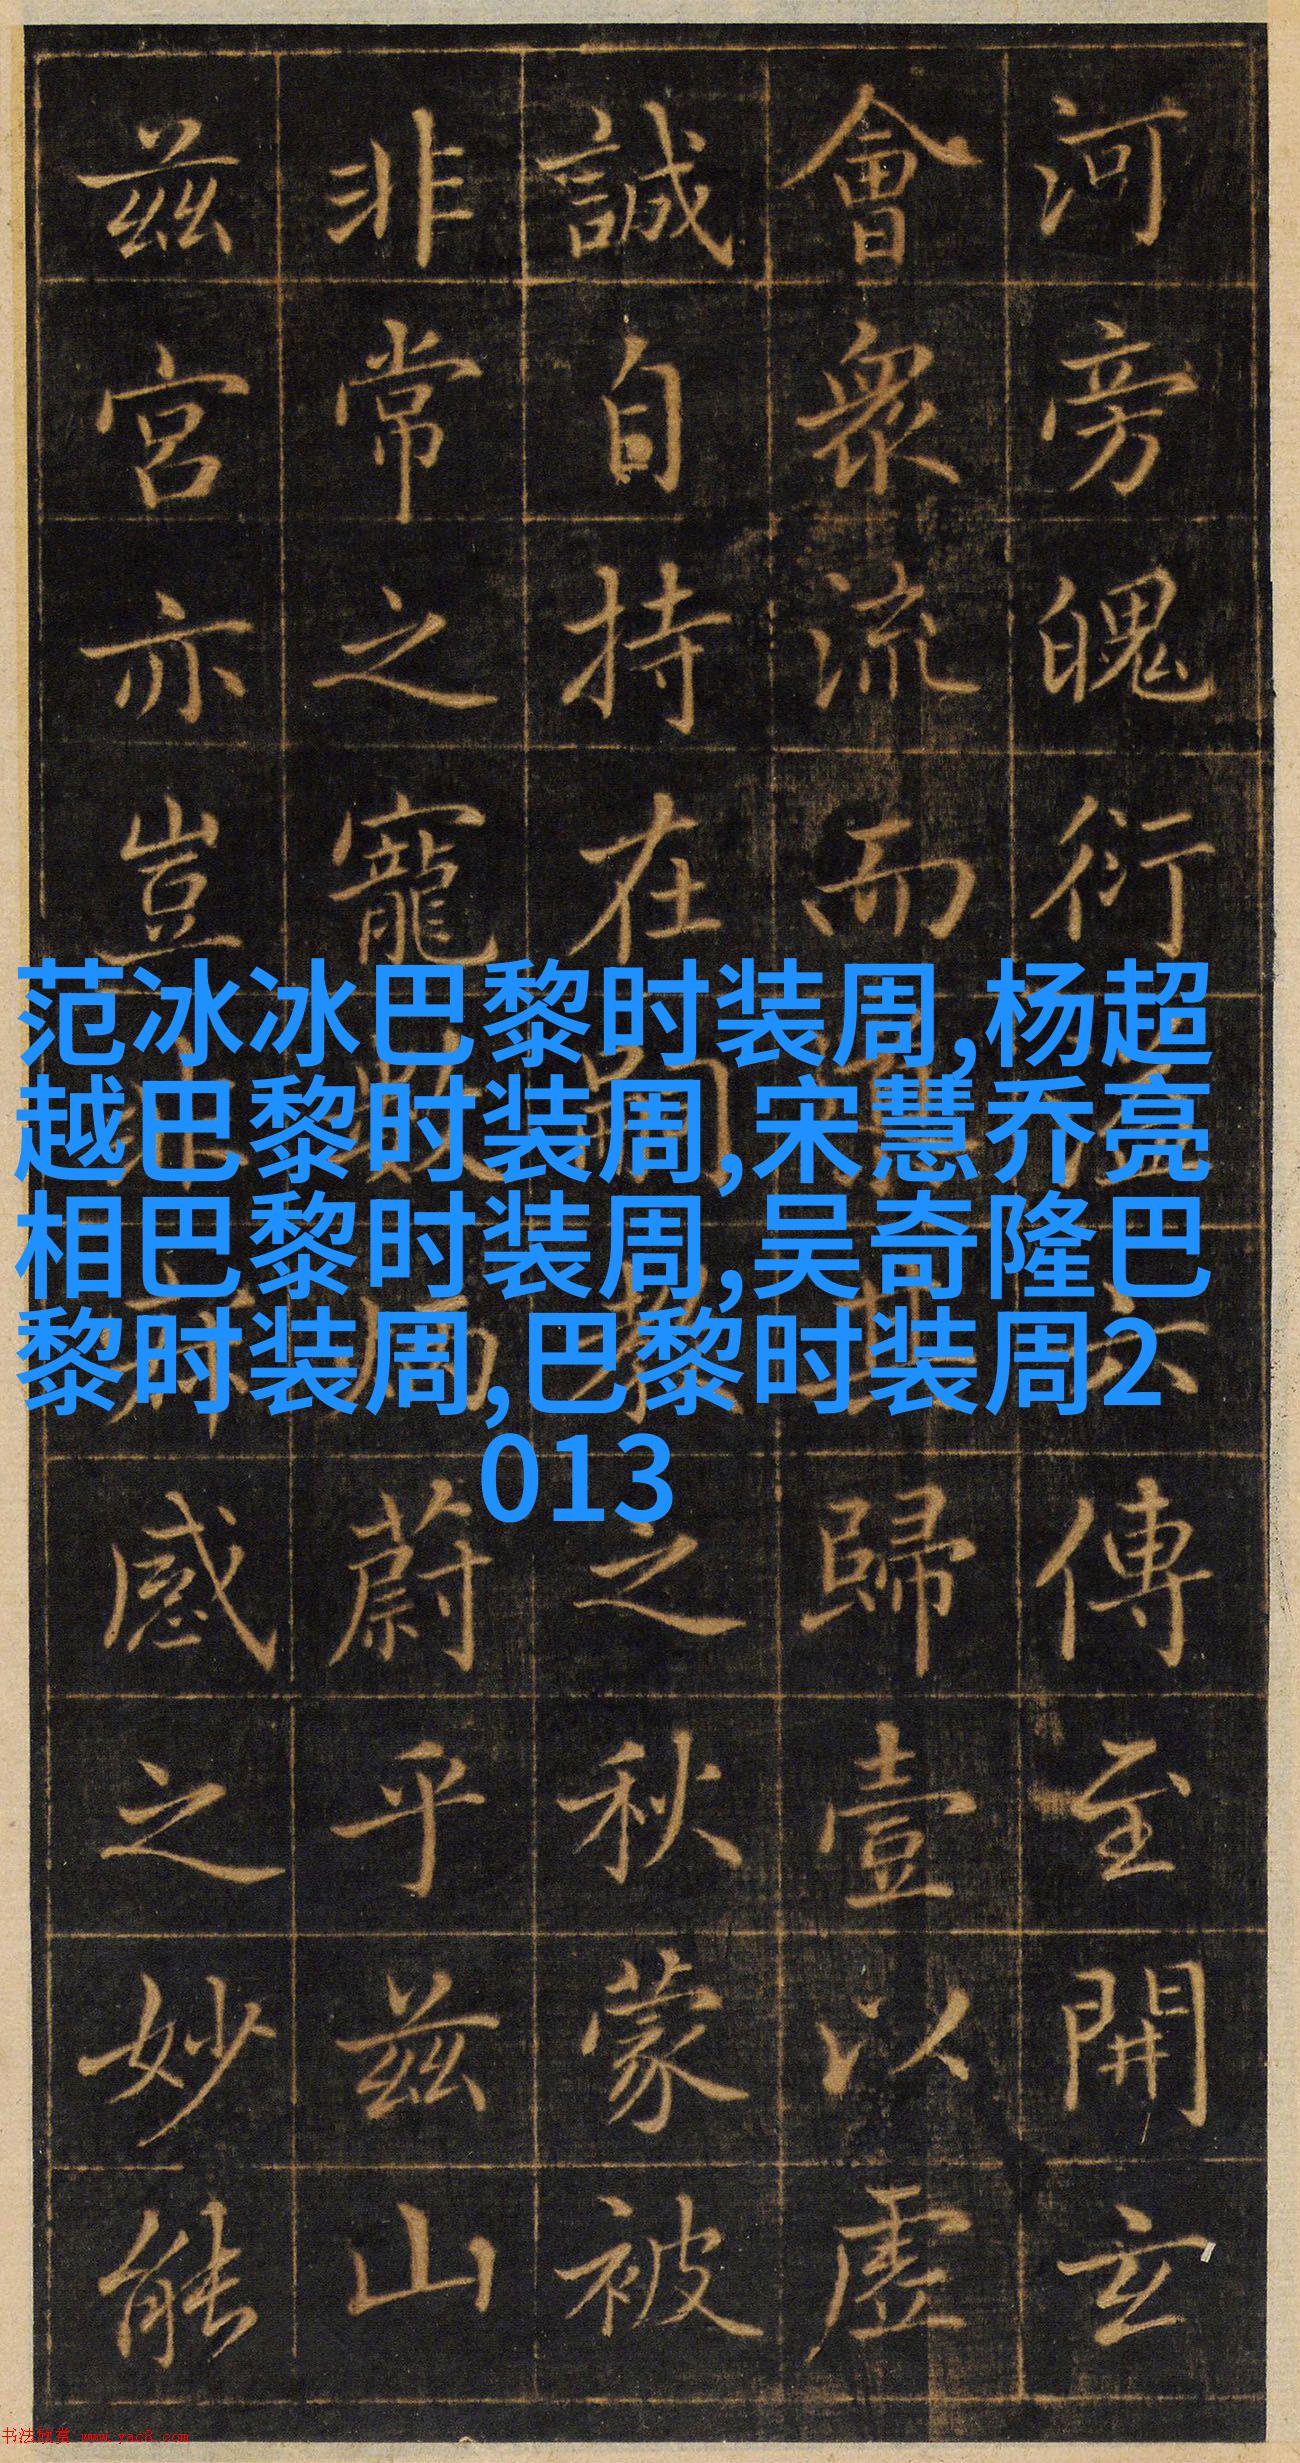 河旁魄衍傳至開玄
會衆流而其歸壹以虛
誠自持在嗣教之秋蒙被
非常之寵蔚乎兹山
兹宮亦豈非所感之妙能
范冰冰巴黎时装周,杨超
越巴黎时装周,宋慧乔亮
相巴黎时装周,吴奇隆巴
黎时装周,巴黎时装周2
013
书法欣赏 www.yac8.com